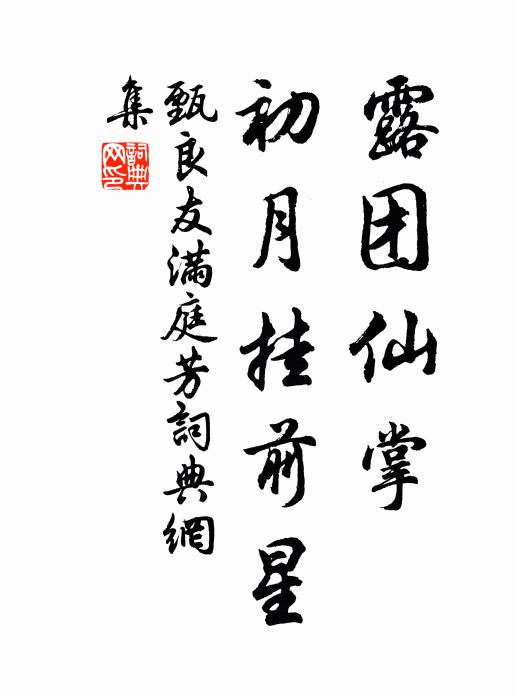 露团仙掌
初月挂前星
甄良友满庭芳詞典網
集
詞典网印